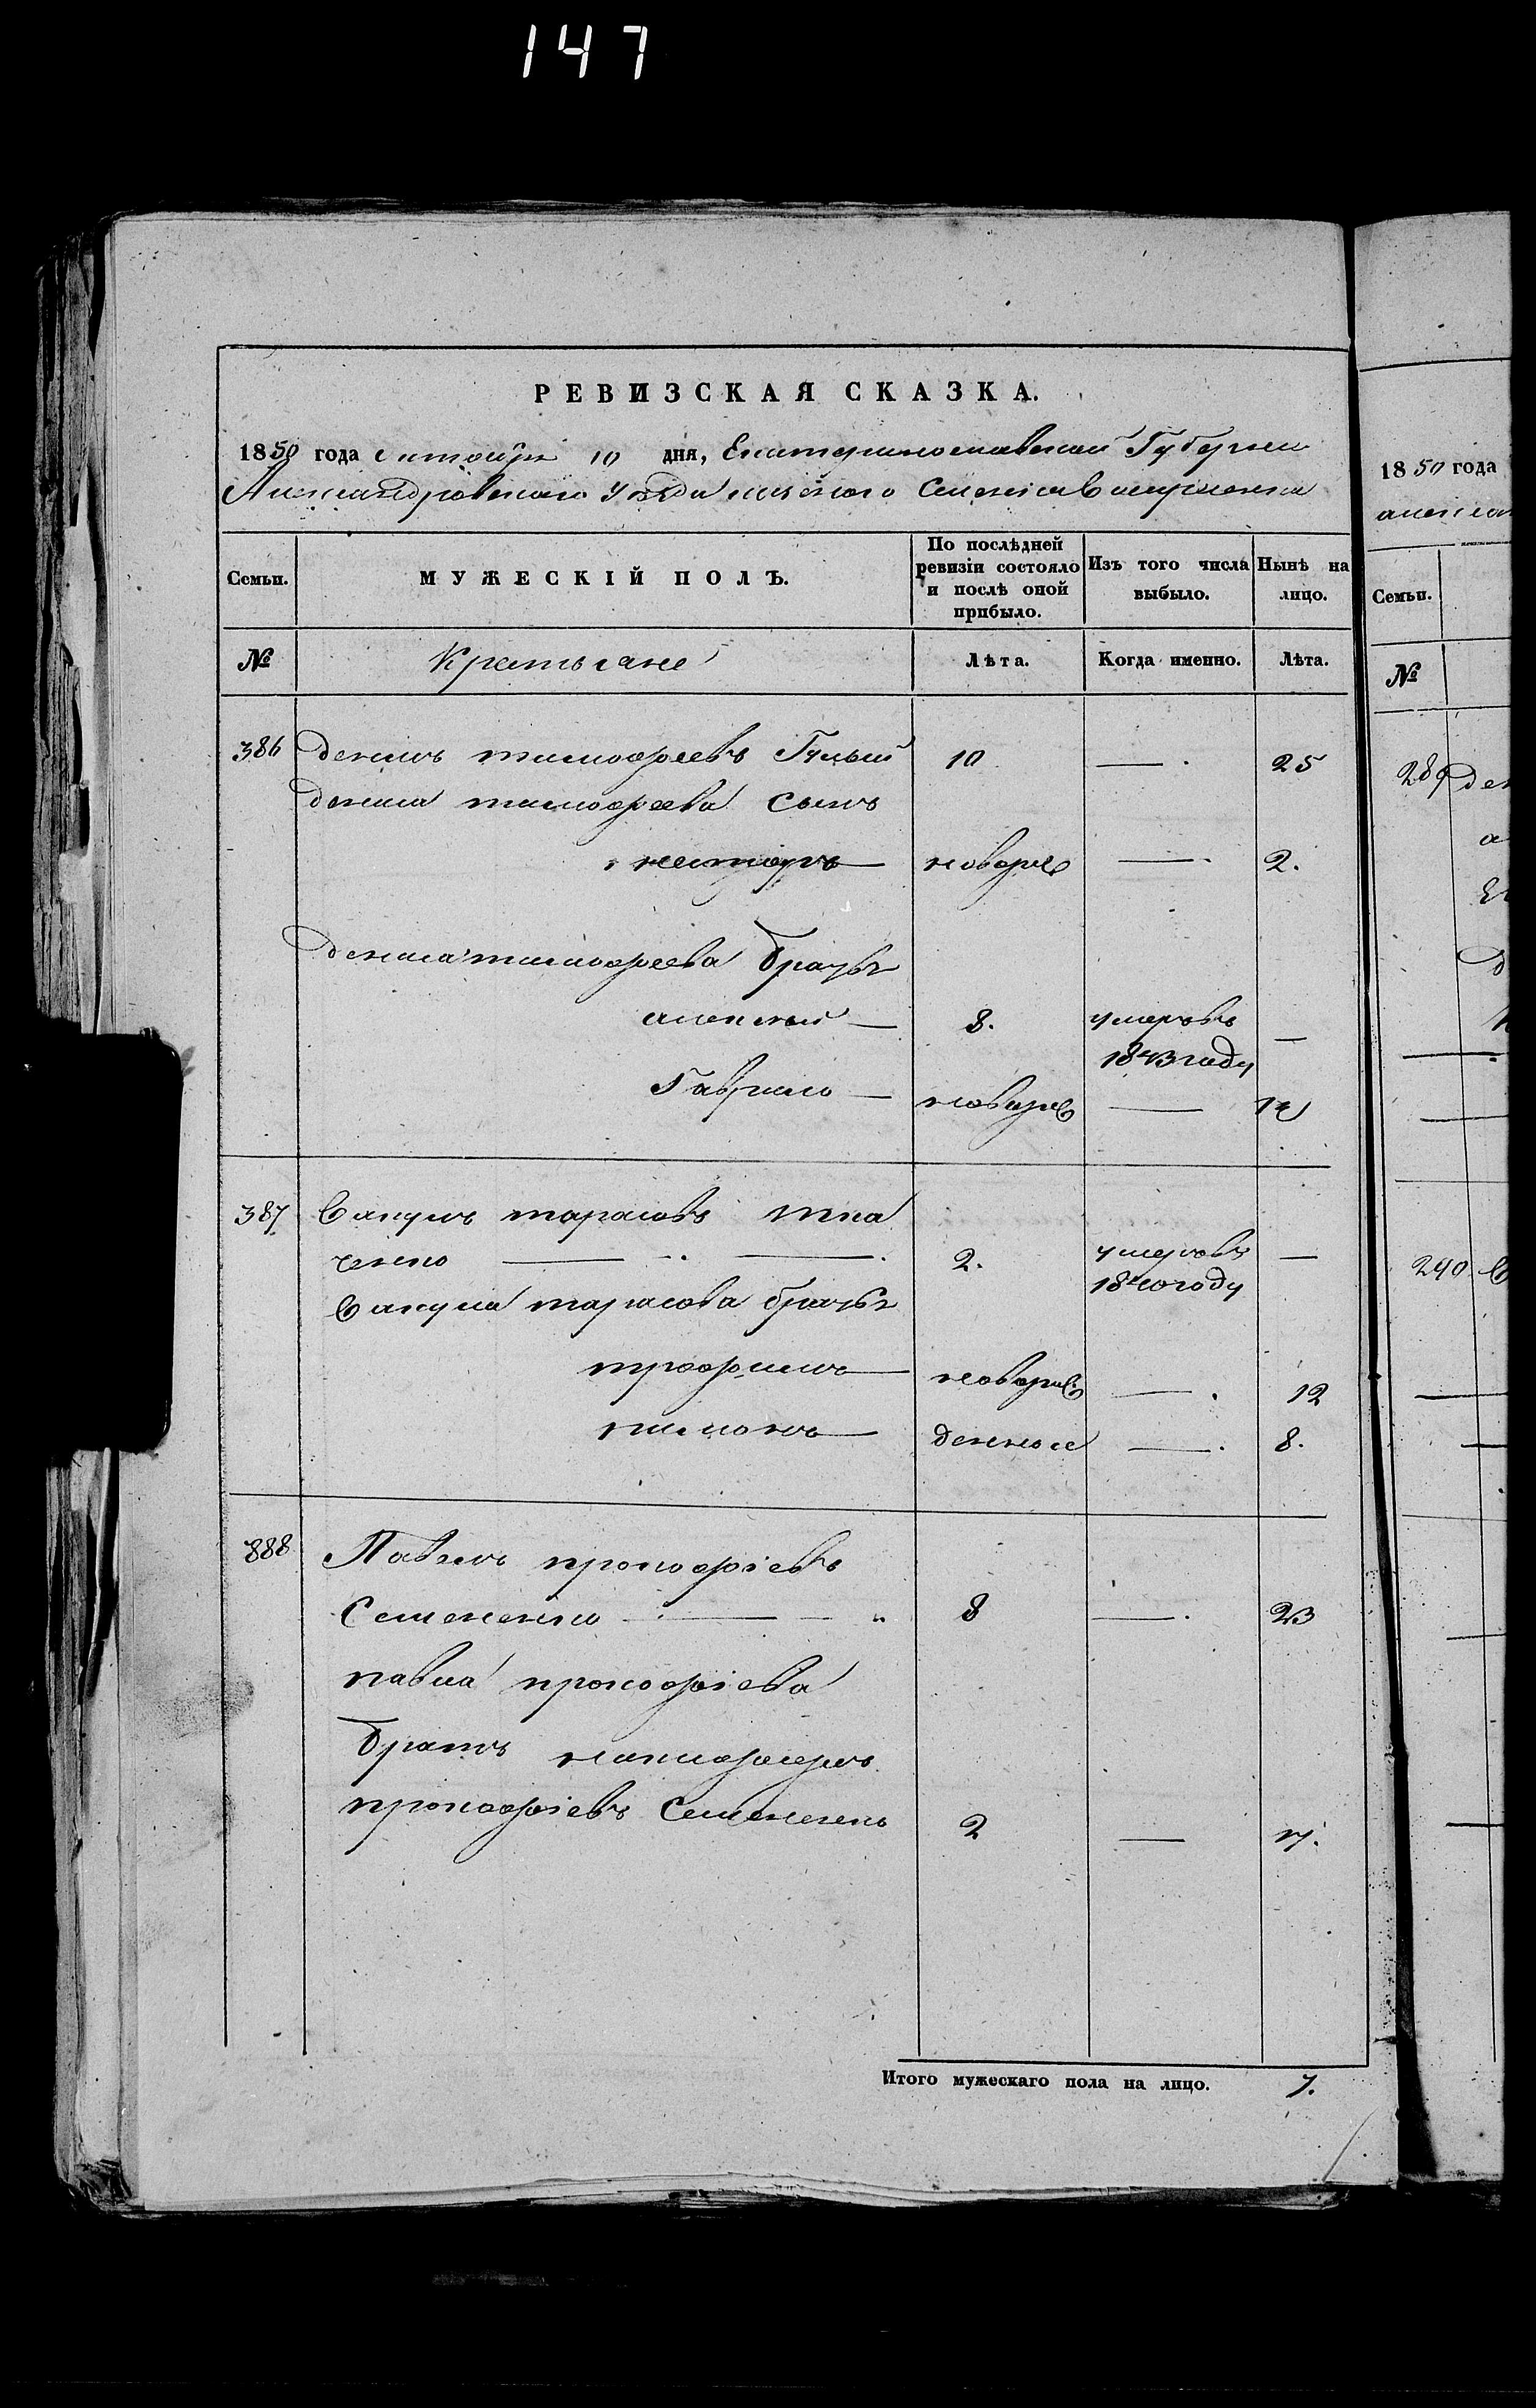 147
РЕВИЗСКАЯ СКАЗКА.
1850 года октября 10 дня, Екатеринославской Губернии
Александровского Уезда
Семьи. МУЖЕСКІЙ ПОЛЪ. По послѣдней ревизіи состояло и послѣ оной прибыло. Изъ того числа выбыло. Нынѣ на лицо.
№ Крестьяне Лѣта. Когда именно. Лѣта.
386 денисъ тимофеевъ 10 — 25
дениса тимофеева сынъ
несторъ — новорж — 2.
дениса тимофеева братья
алексей — 8. умеръ въ —
1843 году
Гаврило — новорж —
387 Вакулъ тарасовъ тка
ченко — 2. умеръ въ —
1840 году
Вакула тарасова братья
трофимъ — новорж — 12
пимонъ — денное — 8.
388 Павелъ прокофіевъ
Семененко — 8 — 23
павла прокофіева
братъ никифоръ
прокофіевъ Семененко 2 — 17.
Итого мужескаго пола на лицо. 7.
1850 года
Семьи.
№
289
240